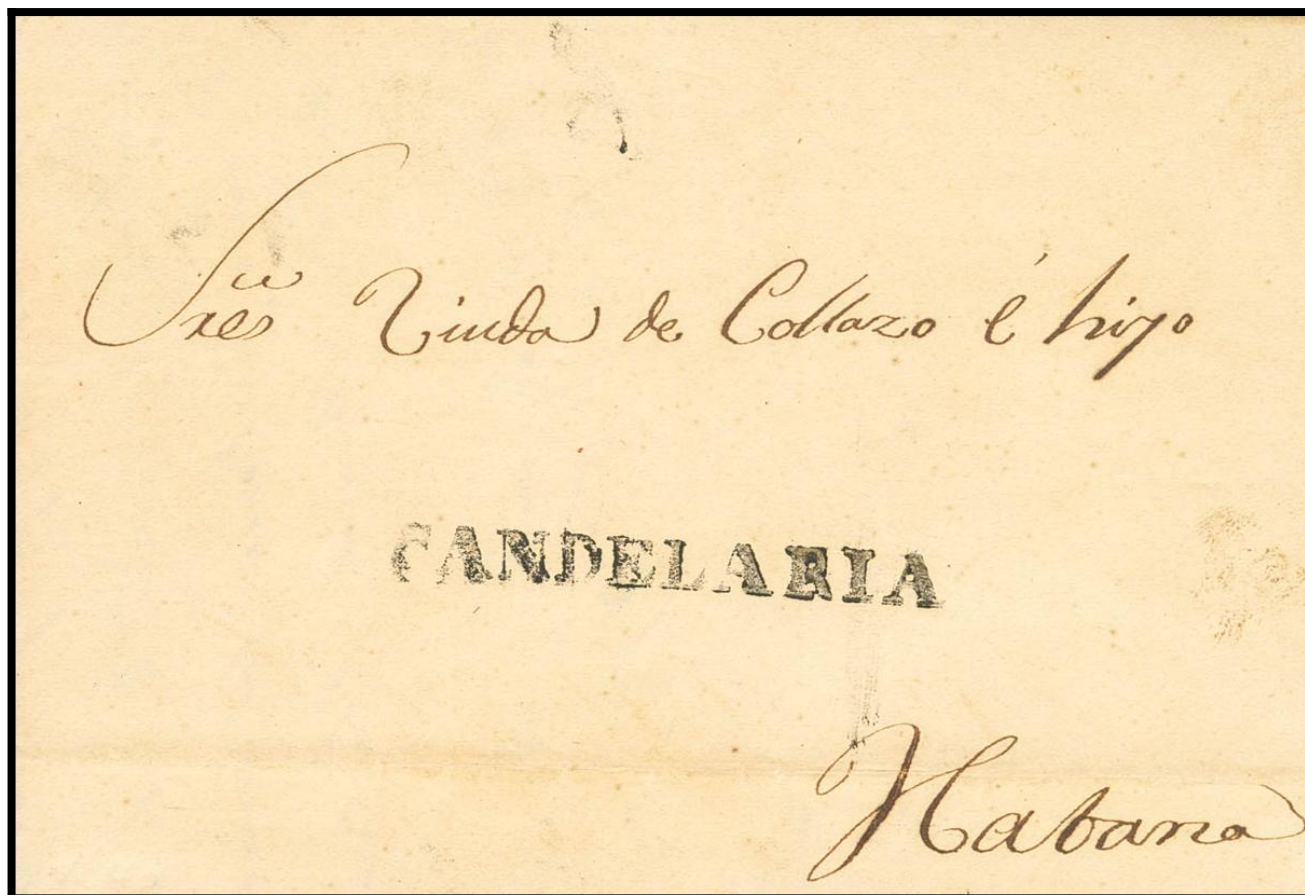 Sres Viuda de Collazo é hijo
CANDELARIA
Habana